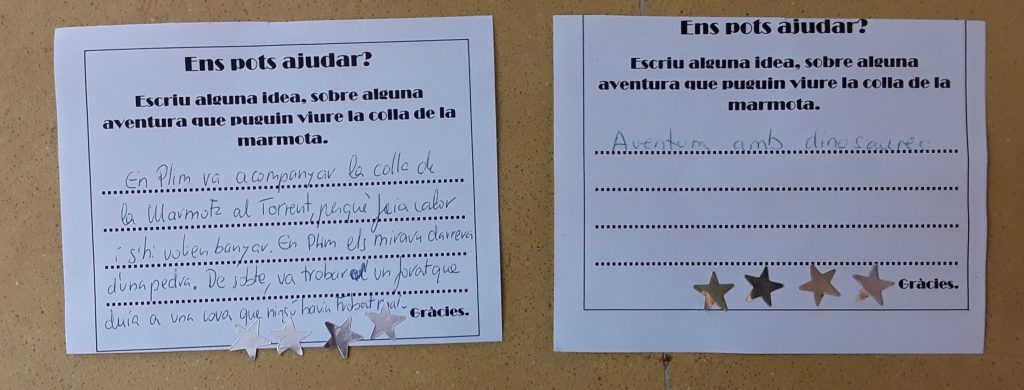 Ens pots ajudar?
Escriu alguna idea, sobre alguna
aventura que puguin viure la colla de la
marmota.
En Plim va acompanyar la colla de
la Marmota al Torrent, perquè feia calor
i s'hi volien banyar. En Plim els mirava darrera
d'una pedra. De sobte, va trobar un forat que
duia a una cova que ningú havia trobat mai.
Gràcies.
Ens pots ajudar?
Escriu alguna idea, sobre alguna
aventura que puguin viure la colla de la
marmota.
Aventura amb dinosaures
Gràcies.